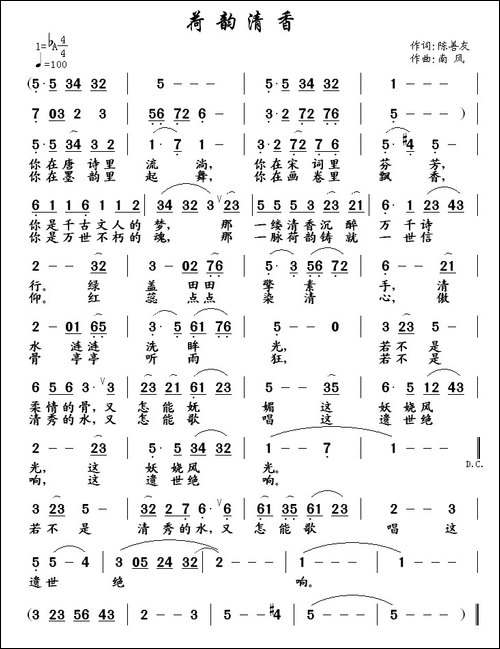 荷韵清香
1=♭A 4/4
♩=100
作词:陈善友
作曲:南 风
(5· 5 34 32 5 - - - 5· 5 34 32 1 - - -
7 03 2 3 5 - - - 56 72 6 - 5 - - -)
5· 5 34 3 1· 7 1 - 3· 2 72 7 6 5· #4 5 -
你在唐诗里 流 淌, 你在宋词里 芬 芳,
你在墨韵里 起 舞, 你在画卷里 飘 香,
6 1 1 3 2 1 6 1 1 2 34 32 3 ∨ 23 5· 5 5 5 3 5 6· 1 23 43
你是千古文人的梦, 那 一缕清香沉醉 万千诗
你是万世不朽的魂, 那 一脉荷韵铸就 一世信
2 - - 32 3 - 02 76 5· 3 56 72 6 - - 21
行。 绿 盖 田田 擎 素 手, 清
仰。 红 蕊 点点 染 清 心, 傲
2 - 01 65 3· 5 61 76 5 - - 0 3 23 5 -
水 涟涟 洗 眸 光, 若不 是
骨 亭亭 听 雨 狂, 若不 是
6 5 6 5 3·∨ 3 23 21 61 23 5 - - 35 6· 5 12 43
柔情的骨,又 怎能妩 媚 这 妖娆风
清秀的水,又 怎能歌 唱 这 遗世绝
2 - - 23 5· 5 34 32 1 - - 7 1 - - -
光, 这 妖娆风 光。
响, 这 遗世绝 响。
D.C.
3 23 5 - 32 2 7 6·∨ 6 61 35 61 23 2 - - 3
若不 是 清秀的水,又 怎 能 歌 唱 这
5 5 - 4 3 05 24 32 2 - - - 1 - - -
遗世 绝 响。
(3 23 56 43 2 - - 3 5 - - #4 5 - - -)